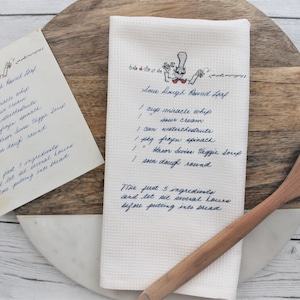 Sour Dough Round Loaf
1 cup miracle whip
" sour cream
1 can waterchestnuts
1 pkg frozen spinach
1 " Knorr Swiss Veggie Soup
1 sour dough round
Mix first 5 ingredients
and let set several hours
before putting into bread